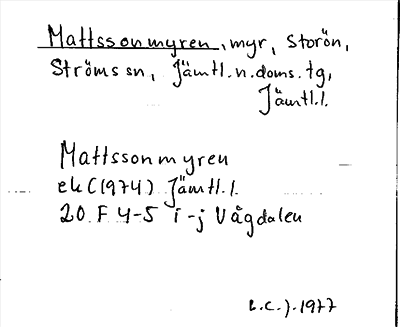 Mattssonmyren, myr, Storön,
Ströms sn, Jämtl. n. doms. tg,
Jämtl. l.
Mattssonmyren
ek (1974) Jämtl. l.
20 F 4-5 i-j Vågdalen
1977